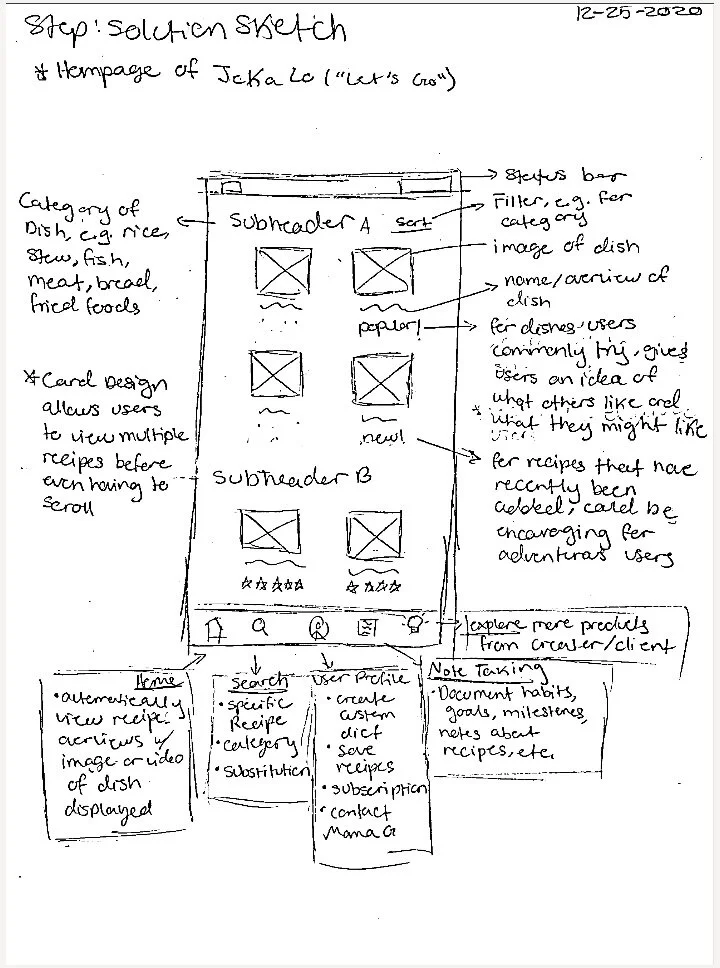 12-25-2020
Step: Solution Sketch
* Hompage of JeKaLo ("Let's Go")
Status bar
Category of
Dish, e.g. rice,
Stew, fish,
meat, bread,
fried foods
Subheader A
Sort
Filter, e.g. for
category
image of dish
name/overview of
dish
popular!
for dishes users
commonly try, gives
users an idea of
what others like and
what they might like
* Card Design
allows users
to view multiple
recipes before
even having to
scroll
new!
for recipes that have
recently been
added, could be
encouraging for
adventurous users
Subheader B
explore more products
from creator/client
Home
• automatically
view recipe
overviews w/
image or video
of dish
displayed
Search
• specific
Recipe
• category
• substitution
User Profile
• create
custom
diet
• save
recipes
• subscription
• contact
Mama G
Note Taking
• Document habits,
goals, milestones,
notes about
recipes, etc.